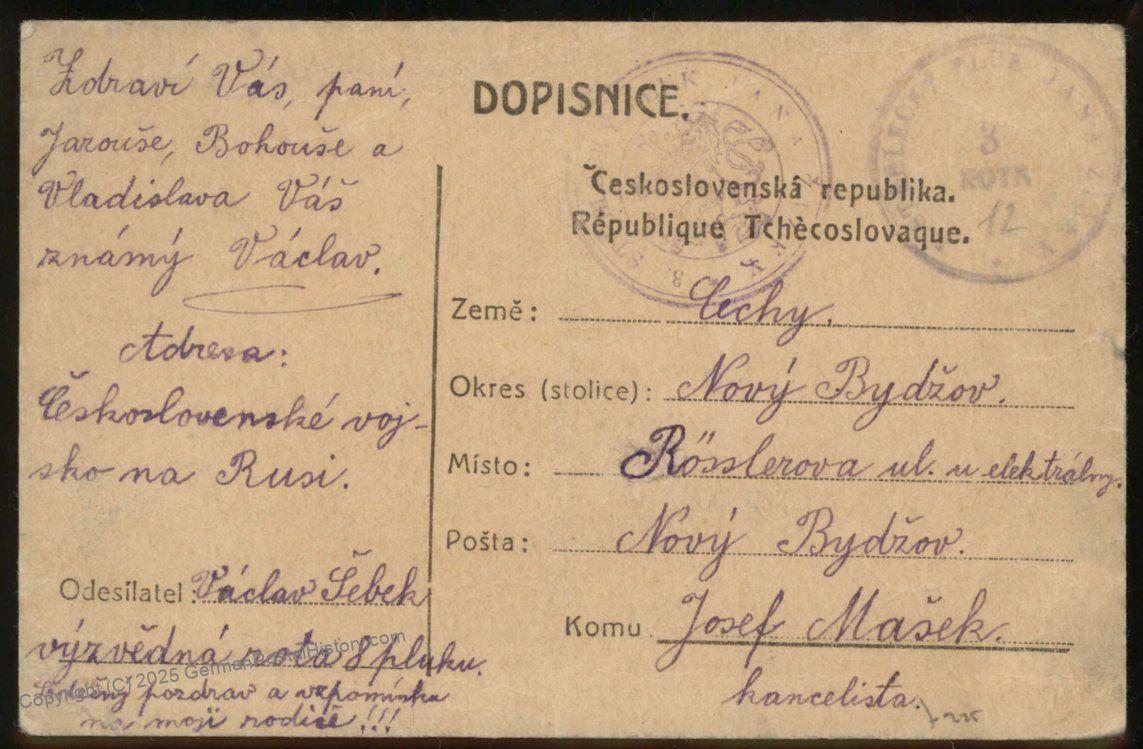 Zdraví Vás, paní,
Jarouše, Bohouše a
Vladislava Váš
známý Václav.
Adresa:
Československé voj-
sko na Rusi.
Odesílatel: Václav Šebek
výzvědná rota 8 pluku.
Srdečný pozdrav a vzpomínka
na moji rodiče!!!
DOPISNICE.
Československá republika.
République Tchècoslovaque.
8
ROTA
12
Země: Čechy.
Okres (stolice): Nový Bydžov.
Místo: Rösslerova ul. u elektrálny.
Pošta: Nový Bydžov.
Komu Josef Mašek.
kancelista.
Copyright (C) 2025 GermanPostalHistory.com